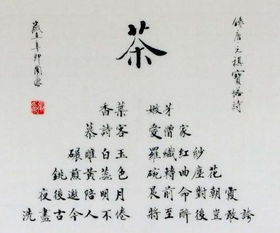 錄唐元稹寶塔詩
茶
香葉 嫩芽
慕詩客 愛僧家
碾雕白玉 羅織紅紗
銚煎黃蕊色 碗轉曲塵花
夜後邀陪明月 晨前命對朝霞
洗盡古今人不倦 將至醉後豈敢誇
辛卯